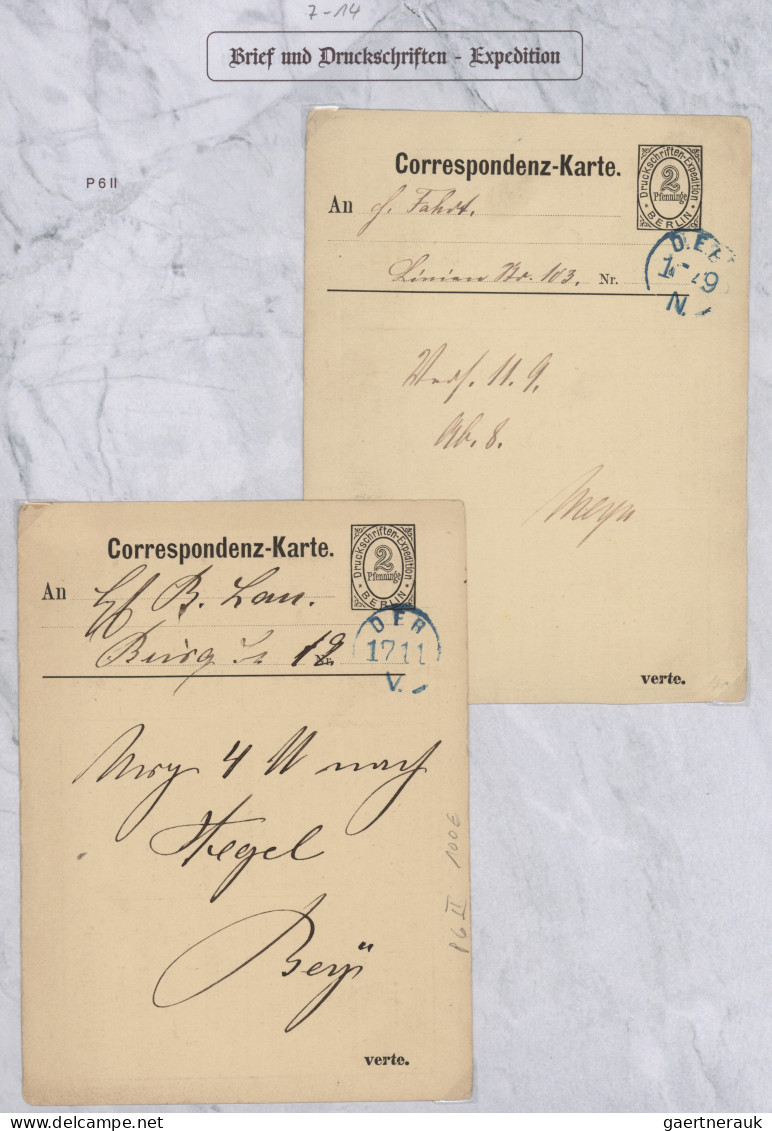 7-14
Brief und Druckschriften - Expedition
P 6 II
Correspondenz-Karte.
Druckschriften-Expedition
2
Pfenninge
BERLIN
An H. Fahdt.
Linien Str. 103. Nr.
D.E.R
N.
11. 9.
Ab. 8.
Meyn
verte.
Correspondenz-Karte.
Druckschriften-Expedition
2
Pfenninge
BERLIN
An B. Lau.
Burg 12 Nr.
DER
17 11
V.
4 U nach
Tegel
P6 II 100€
verte.
gaertnerauk